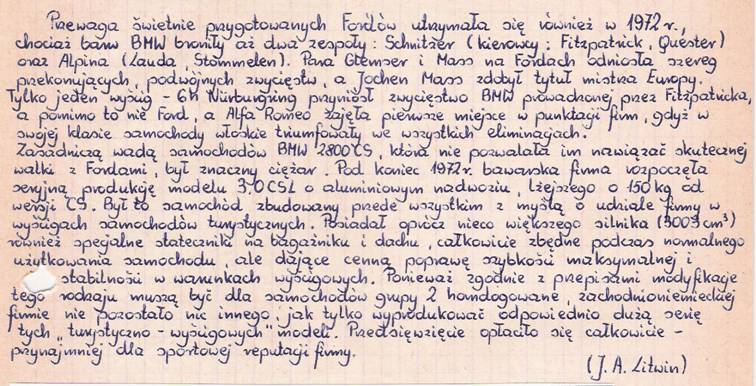 Przewaga świetnie przygotowanych Fordów utrzymała się również w 1972 r.,
chociaż barw BMW broniły aż dwa zespoły: Schnitzer (kierowcy: Fitzpatrick, Quester)
oraz Alpina (Lauda, Stommelen). Para Glemser i Mass na Fordach odniosła szereg
przekonujących, podwójnych zwycięstw, a Jochen Mass zdobył tytuł mistrza Europy.
Tylko jeden wyścig - 6h Nürburgring przyniósł zwycięstwo BMW prowadzonej przez Fitzpatricka,
a pomimo to nie Ford, a Alfa Romeo zajęła pierwsze miejsce w punktacji firm, gdyż w
swojej klasie samochody włoskie triumfowały we wszystkich eliminacjach.
Zasadniczą wadą samochodów BMW 2800 CS, która nie pozwalała im nawiązać skutecznej
walki z Fordami, był znaczny ciężar. Pod koniec 1972r. bawarska firma rozpoczęła
seryjną produkcję modelu 3,0 CSL o aluminiowym nadwoziu, lżejszego o 150 kg od
wersji CS. Był to samochód zbudowany przede wszystkim z myślą o udziale firmy w
wyścigach samochodów turystycznych. Posiadał oprócz nieco większego silnika (3003 cm³)
również specjalne stateczniki na bagażniku i dachu, całkowicie zbędne podczas normalnego
użytkowania samochodu, ale dające cenną poprawę szybkości maksymalnej i
stabilności w warunkach wyścigowych. Ponieważ zgodnie z przepisami modyfikacje
tego rodzaju muszą być dla samochodów grupy 2 homologowane, zachodnioniemieckiej
firmie nie pozostało nic innego, jak tylko wyprodukować odpowiednio dużą serię
tych „turystyczno - wyścigowych" modeli. Przedsięwzięcie opłaciło się całkowicie -
przynajmniej dla sportowej reputacji firmy.
(J. A. Litwin)